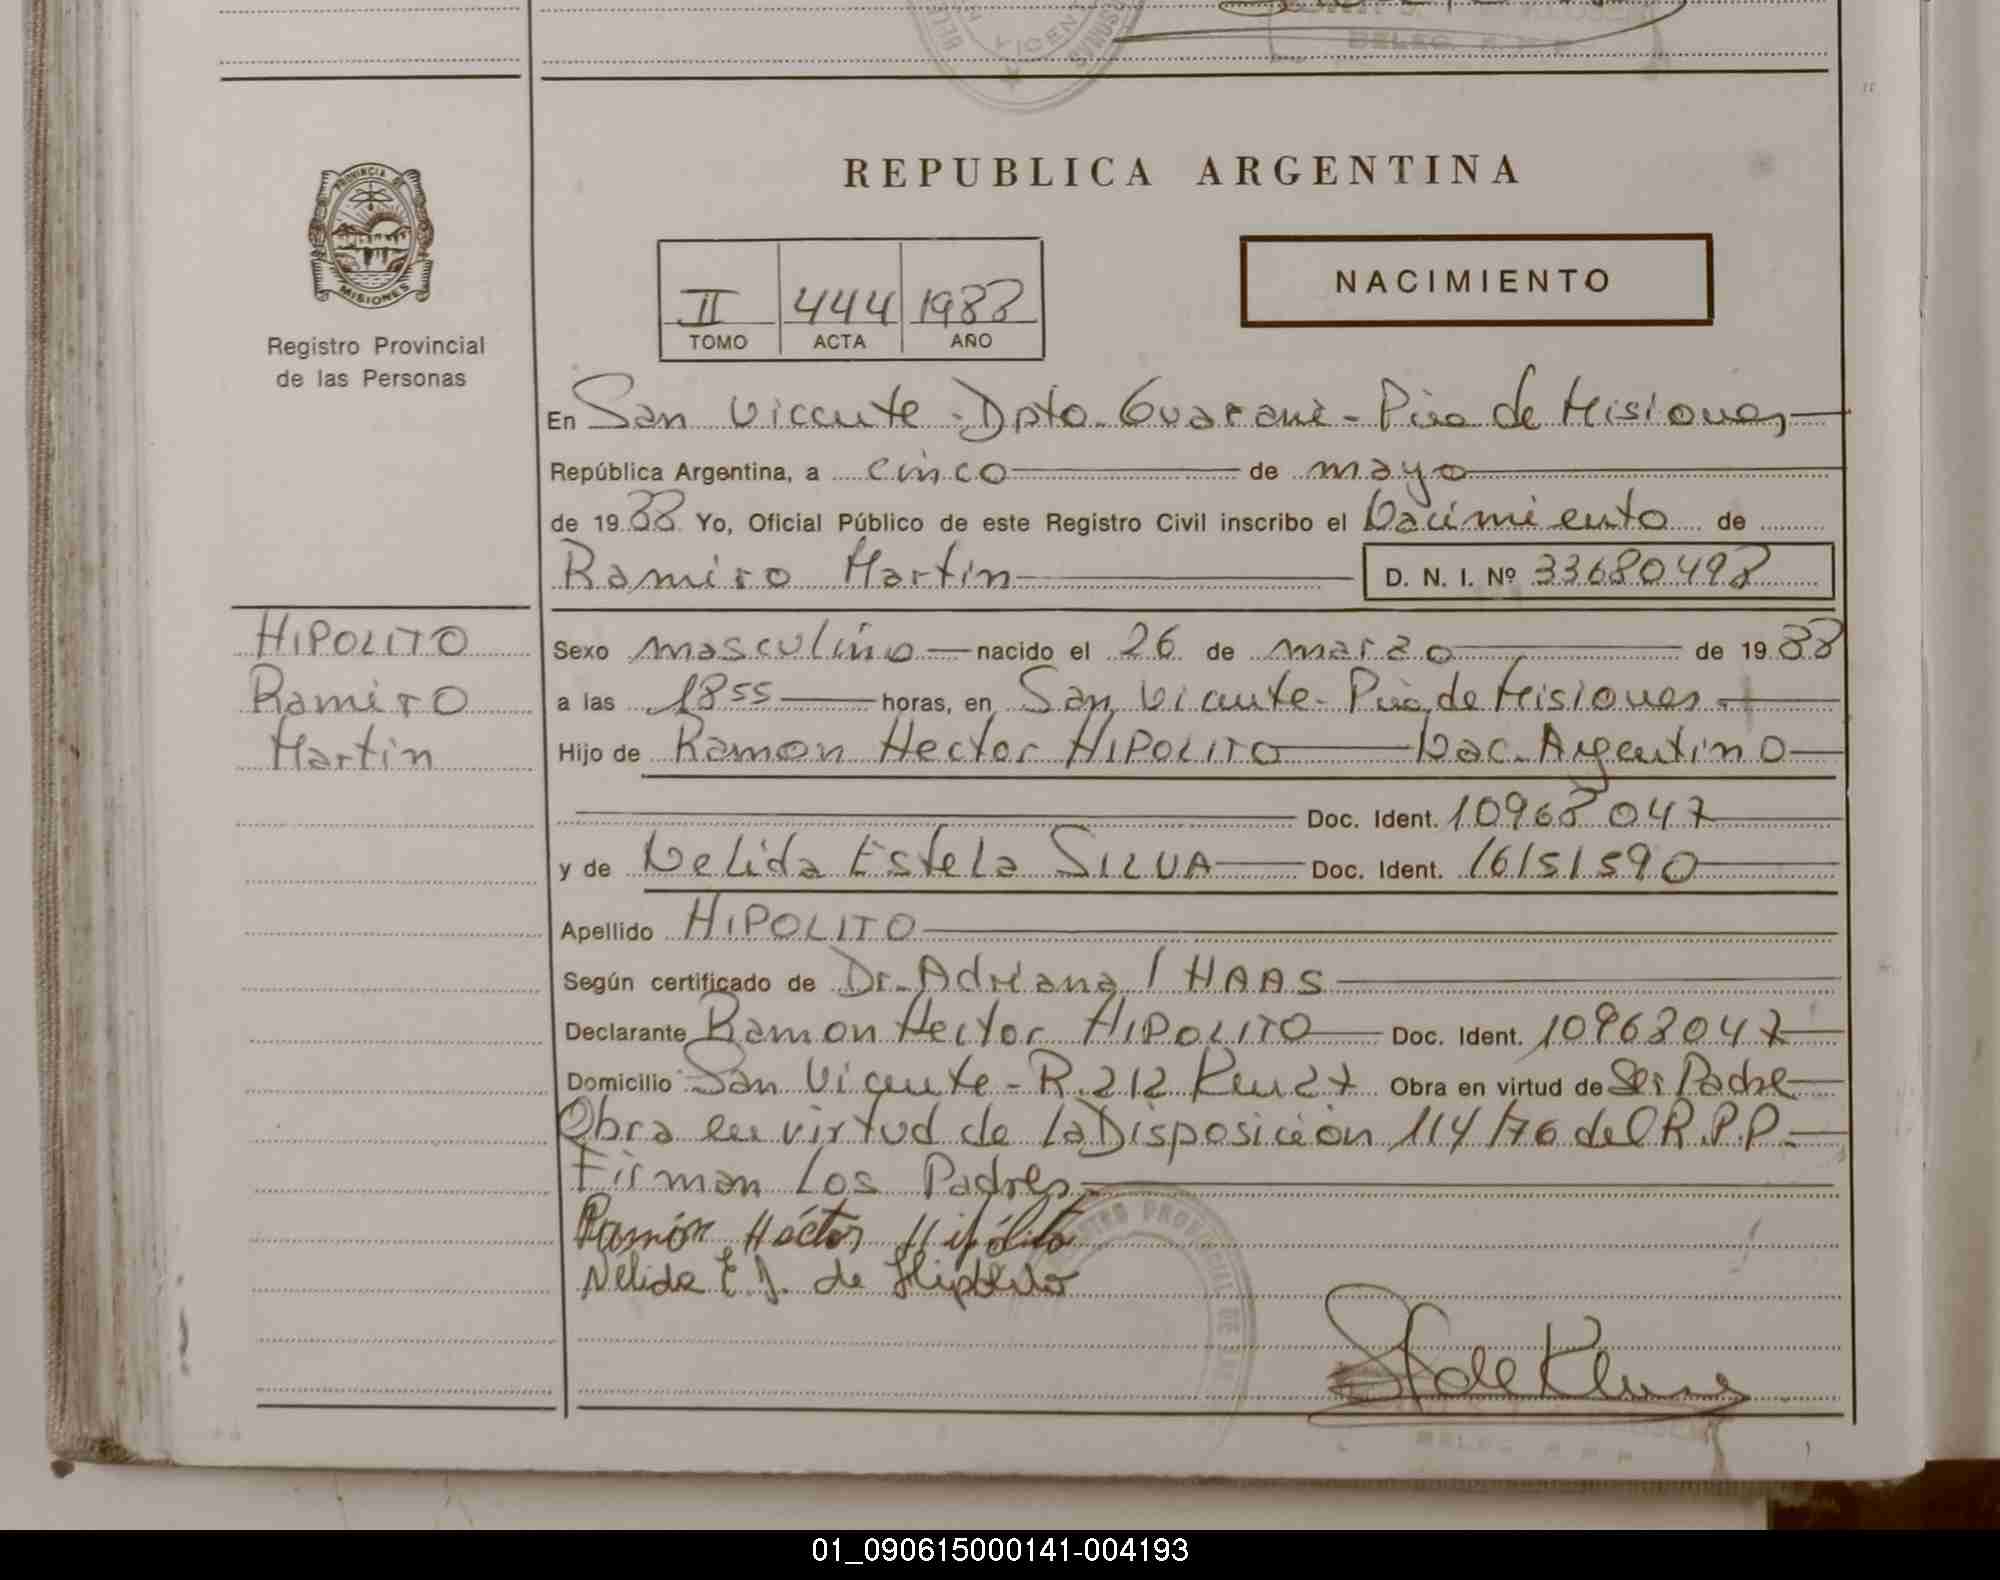 REPUBLICA ARGENTINA
PROVINCIA DE
MISIONES
Registro Provincial
de las Personas
NACIMIENTO
II 444 1988
TOMO ACTA AÑO
En San Vicente - Dpto. Guarani - Pcia de Misiones,
República Argentina, a cinco de mayo
de 1988 Yo, Oficial Público de este Registro Civil inscribo el Nacimiento de
Ramiro Martin D. N. I. Nº 33680498
HIPOLITO
Ramiro
Martin
Sexo masculino nacido el 26 de marzo de 1988
a las 18 55 horas, en San Vicente - Pcia de Misiones.
Hijo de Ramon Hector HIPOLITO Nac. Argentino
Doc. Ident. 10968047
y de Nelida Estela SILVA Doc. Ident. 16151590
Apellido HIPOLITO
Según certificado de Dr. Adriana I HAAS
Declarante Ramon Hector HIPOLITO Doc. Ident. 10968047
Domicilio San Vicente - R. 212 Km 27 Obra en virtud de Ser Padre
Obra en virtud de la Disposición 114/76 del R.P.P.
Firman Los Padres
Ramón Héctor Hipólito
Nelida E S. de Hipólito
01_090615000141-004193